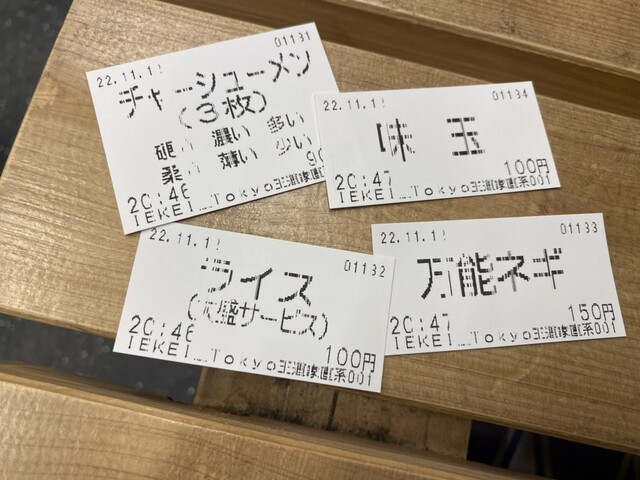 22.11.1 01131
チャーシューメン
(3枚)
硬い 濃い 多い
柔 薄い 少い
20:46
IEKEI Tokyo
22.11.1 01134
味玉
100円
20:47
IEKEI Tokyo 系001
22.11.1 01132
ライス
(大盛サービス)
100円
20:46
IEKEI Tokyo 系001
22.11.1 01133
万能ネギ
150円
20:47
IEKEI Tokyo 系001